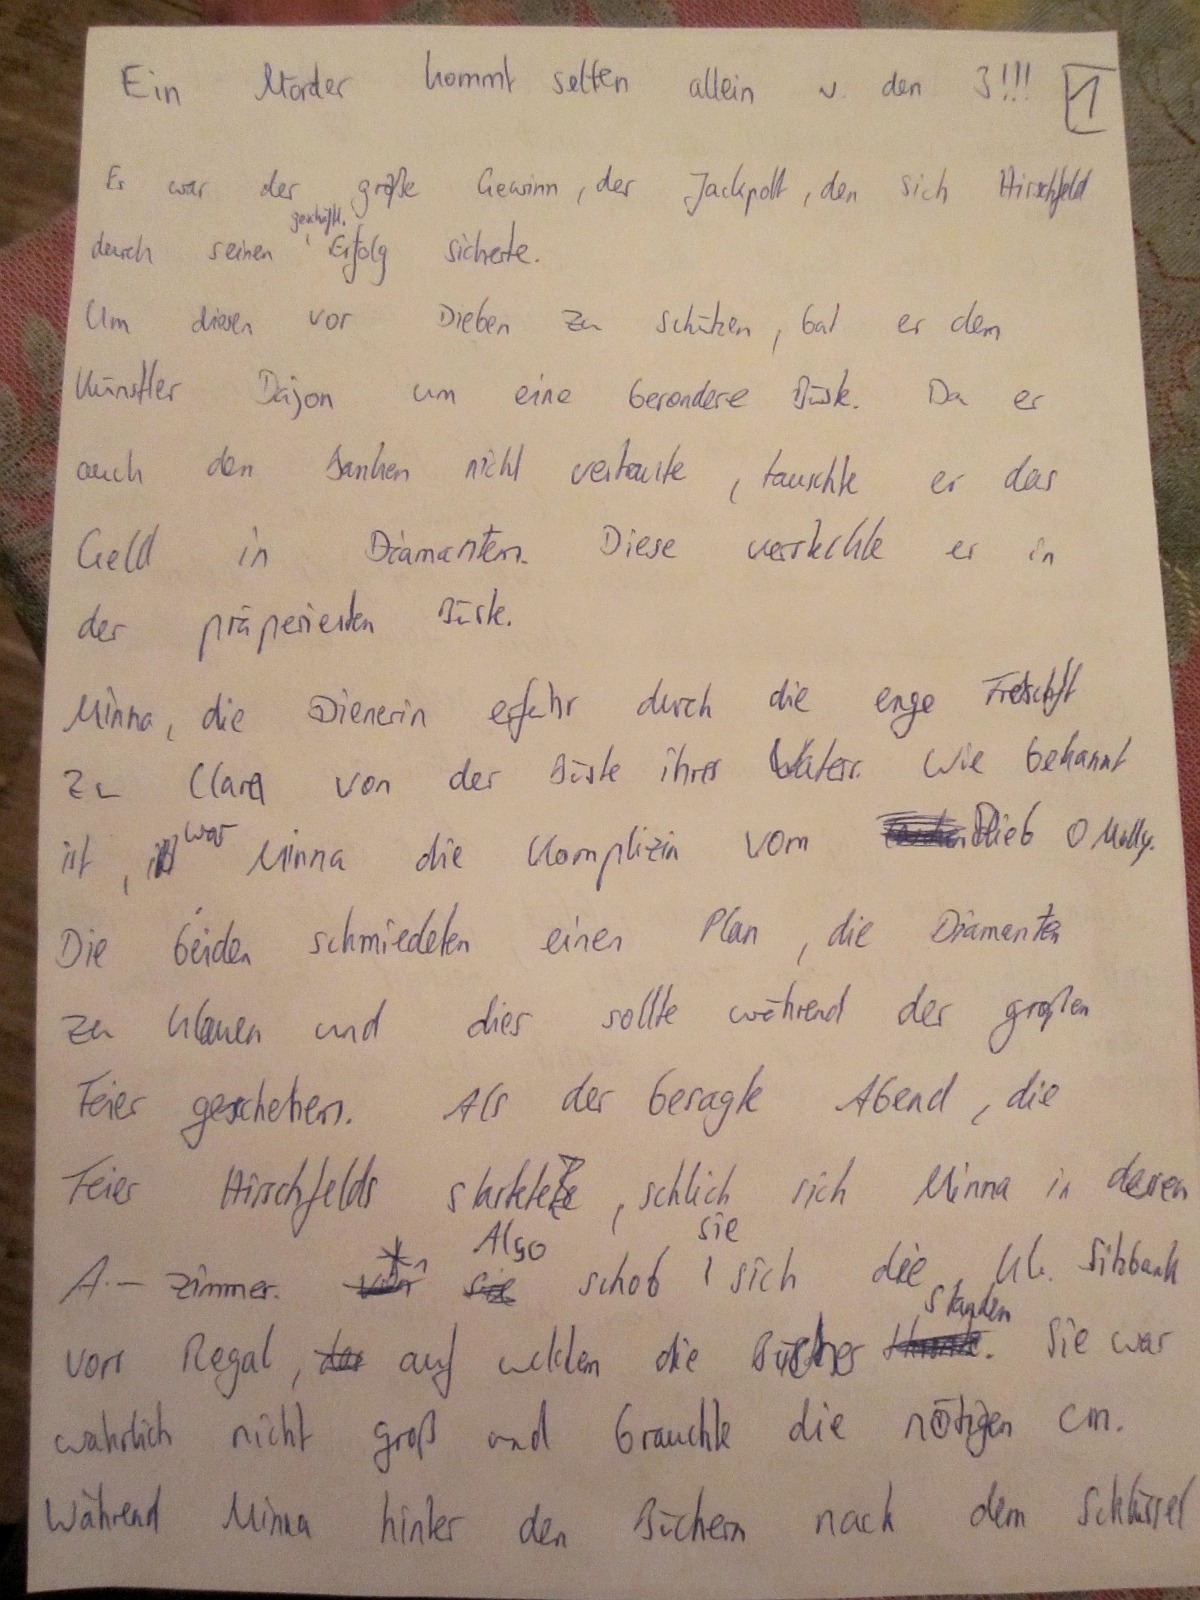 Ein Mörder kommt selten allein v. den 3!!! 1
Es war der große Gewinn, der Jackpott, den sich Hirschfeld
geschäftl.
durch seinen Erfolg sicherte.
Um diesen vor Dieben zu schützen, bat er dem
Künstler Dajon um eine besondere Büste. Da er
auch den Banken nicht vertraute, tauschte er das
Geld in Diamanten. Diese versteckte er in
der präperierten Büste.
Minna, die Dienerin erfuhr durch die enge
zu Clara von der Büste ihres Vaters. Wie bekannt
ist, war Minna die Komplizin vom Dieb O Molly.
Die beiden schmiedeten einen Plan, die Diamanten
zu klauen und dies sollte während der großen
Feier geschehen. Als der besagte Abend, die
Feier Hirschfelds startete, schlich sich Minna in dessen
Also sie
A.-zimmer. * schob sich die kl. Sitzbank
standen
vors Regal, auf welchen die Bücher. Sie war
wahrlich nicht groß und brauchte die nötigen cm.
Während Minna hinter den Büchern nach dem Schlüssel